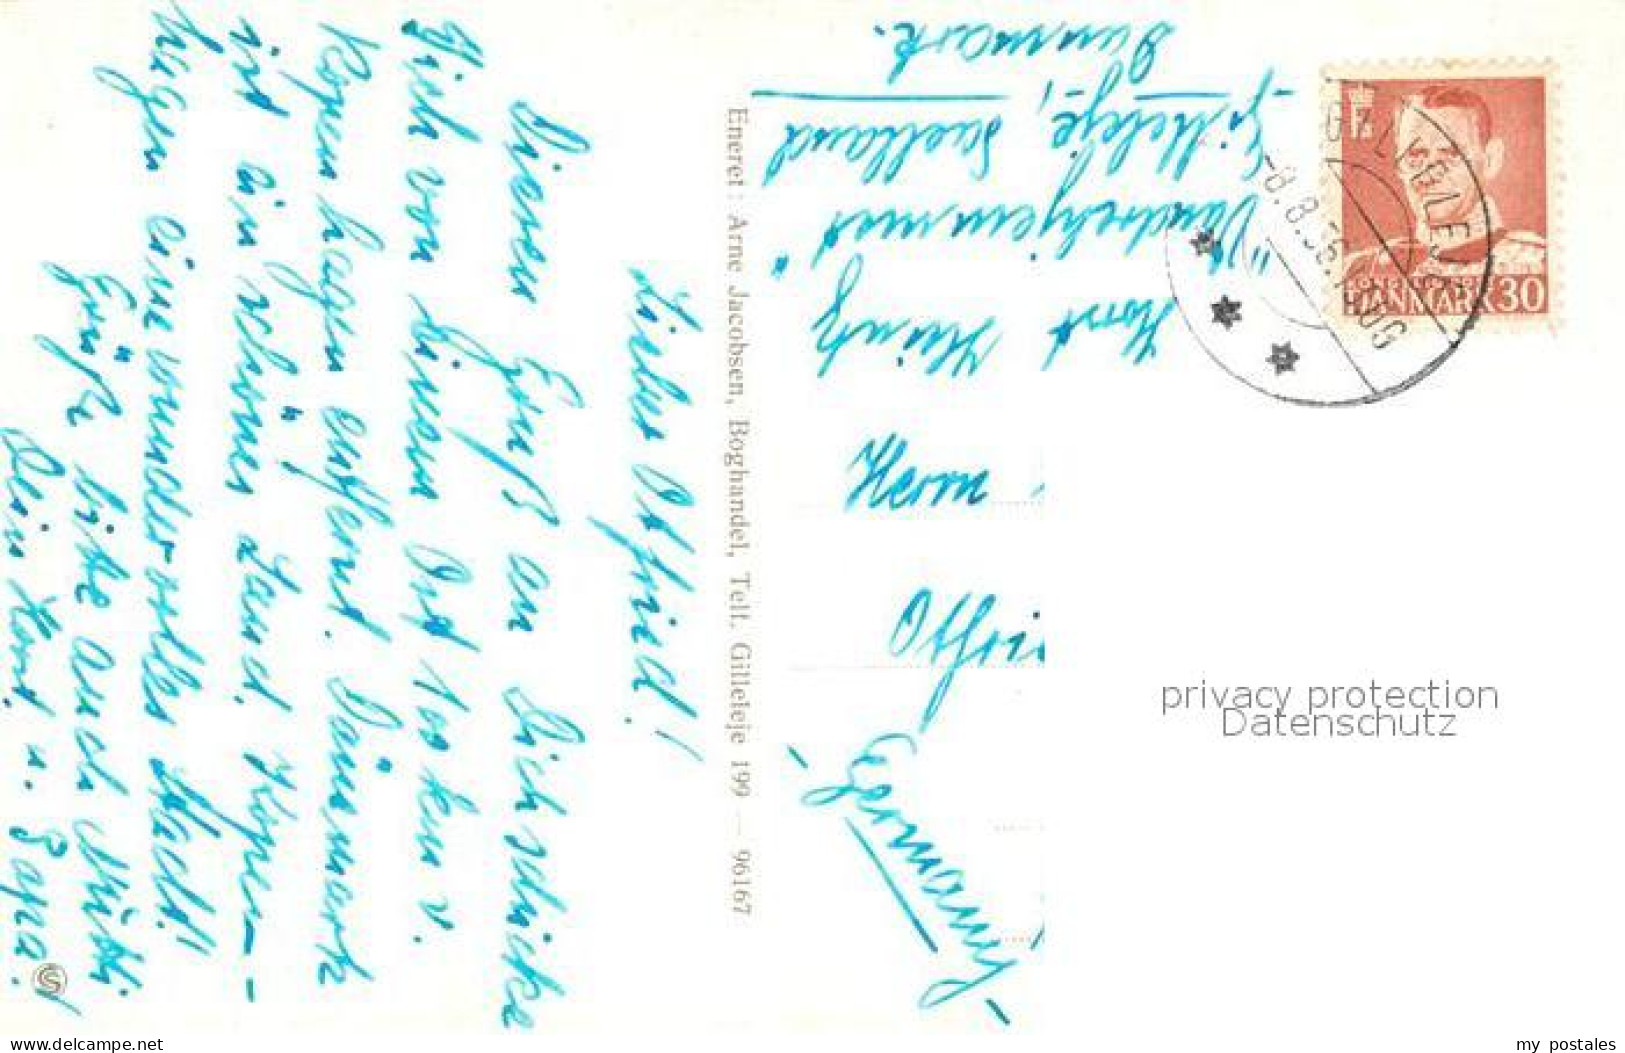 Lieber Otfried!
Diesen Gruß an Dich schicke
Dich von einem Ort 40 km v.
Kopenhagen entfernt. Dänemark
ist ein schönes Land. Kopen-
hagen eine wundervolles Stadt!
Grüß bitte auch Mutti
Dein Horst u. Papa!
Eneret: Arne Jacobsen, Boghandel, Telf. Gilleleje 199 — 96167
Horst Heintz
"Vandrehjemmet"
Gilleleje, Seelland
Danmark.
Herrn
Otfri
-Germany-
GILLELEJE
-8.8.56.
DANMARK 30
privacy protection
Datenschutz
www.delcampe.net
my_postales